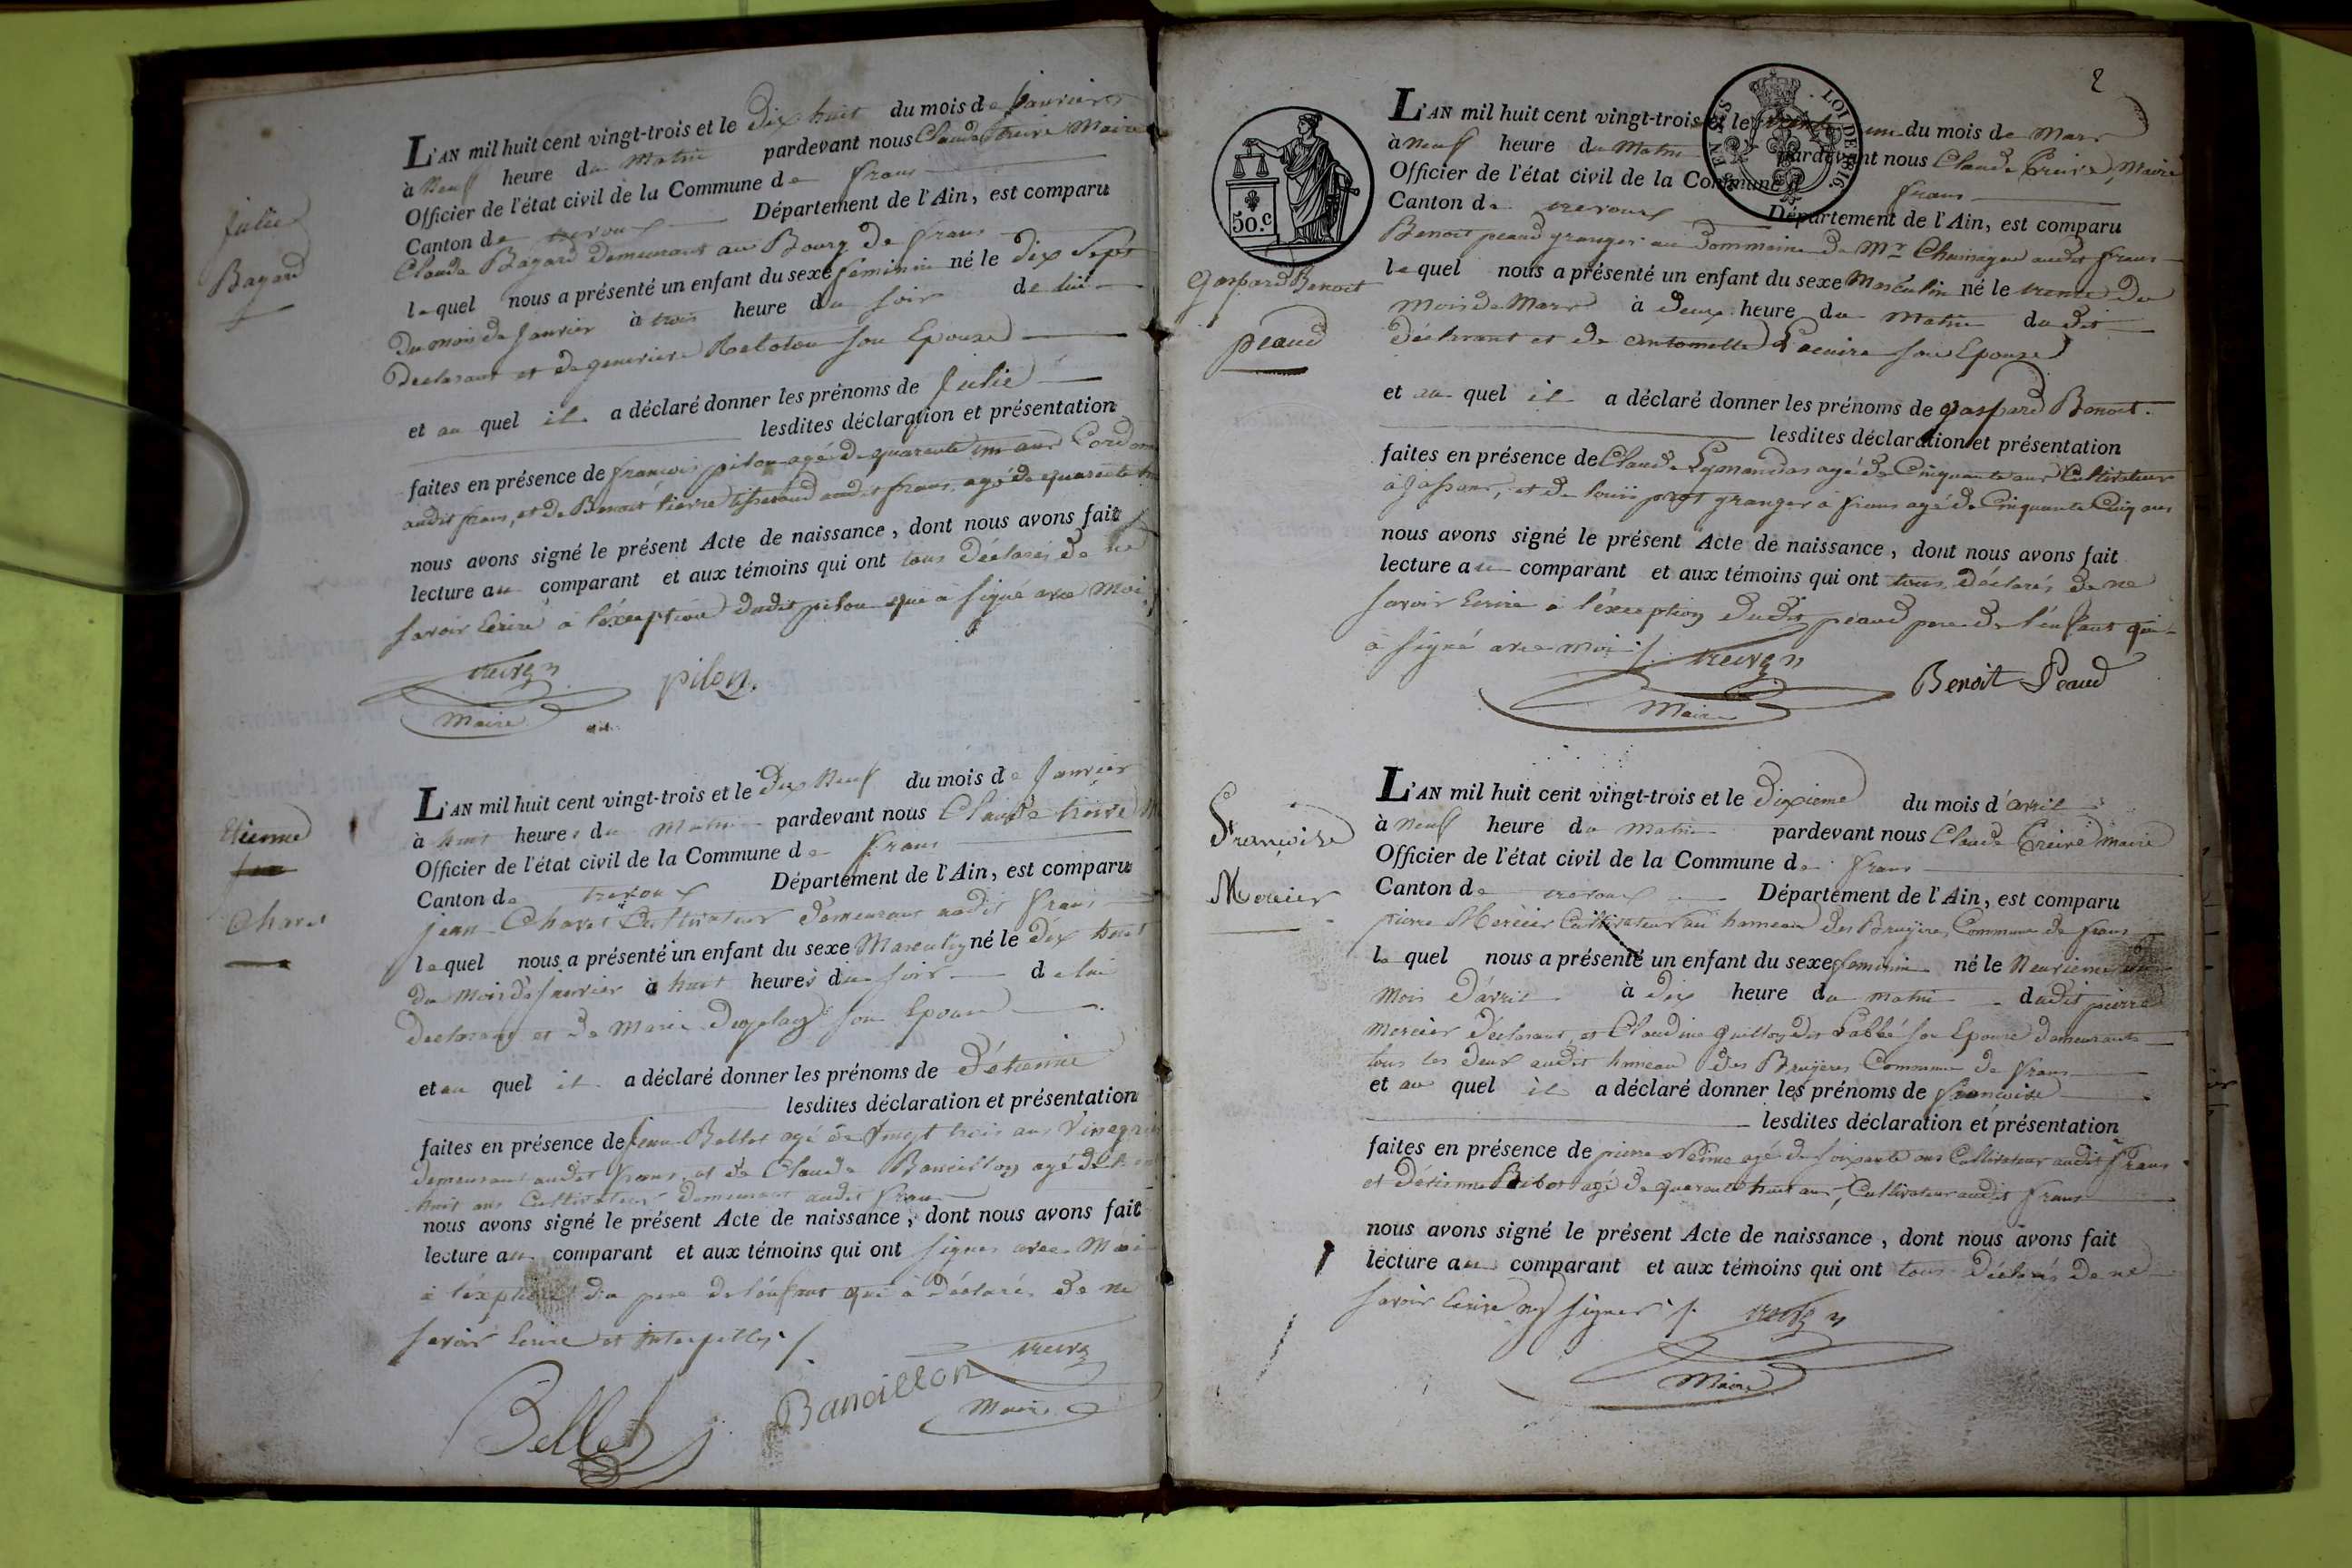 Julie
Bagard
L'AN mil huit cent vingt-trois et le dix huit du mois de Janvier
à Neuf heure du Matin pardevant nous Claude treive Maire
Officier de l'état civil de la Commune de frans
Canton de trevoux Département de l'Ain, est comparu
Claude Bagard demeurant au Bourg de frans
lequel nous a présenté un enfant du sexe feminin né le dix Sept
du mois de Janvier à trois heure du soir de lui
Declarant et de genevieve son Epouse
et au quel il a déclaré donner les prénoms de Julie
lesdites déclaration et présentation
faites en présence de françois pilon agé de quarante un ans
audit frans, et de Benoit tisserand audit frans, agé de quarante
nous avons signé le présent Acte de naissance, dont nous avons fait
lecture au comparant et aux témoins qui ont tous déclarés de ne
savoir Ecrire à l'éxception dudit pilon qui à signé avec Moi
treive
pilon
Maire
Etienne
Charet
L'AN mil huit cent vingt-trois et le dix Neuf du mois de Janvier
à huit heures du Matin pardevant nous Claude treive
Officier de l'état civil de la Commune de frans
Canton de trevoux Département de l'Ain, est comparu
jean Charet Cultivateur demeurant audit frans
lequel nous a présenté un enfant du sexe Masculin né le dix huit
du Mois de Janvier à huit heures du soir de lui
declarant et de Marie son Epouse
et au quel il a déclaré donner les prénoms de d'étienne
lesdites déclaration et présentation
faites en présence de Jean Bellet agé de Vingt trois ans
demeurant audit frans, et de Claude Bancillon agé de
huit ans Cultivateur demeurant audit frans
nous avons signé le présent Acte de naissance, dont nous avons fait
lecture au comparant et aux témoins qui ont signés avec Moi
à du pere de l'énfant qui à déclaré de ne
savoir Ecrire
Bellet
Bancillon
treive
Maire
2
50.c
LOI DE 1816.
Gaspard Benoit
peaud
L'AN mil huit cent vingt-trois et le trente un du mois de Mars
à Neuf heure du Matin pardevant nous Claude Treive Maire
Officier de l'état civil de la Commune d frans
Canton de trevoux Département de l'Ain, est comparu
Benoit peaud granger au Dommaine de Mr audit frans
lequel nous a présenté un enfant du sexe Masculin né le trente du
Mois de Mars à deux heure du Matin dudit
déclarant et de antoinette son Epouse
et au quel il a déclaré donner les prénoms de gaspard Benoit.
lesdites déclaration et présentation
faites en présence de Claude agé de Cinquante ans Cultivateur
à Jassans, et de louis granger à frans agé de Cinquante Cinq ans
nous avons signé le présent Acte de naissance, dont nous avons fait
lecture au comparant et aux témoins qui ont tous déclarés de ne
savoir Ecrire à l'éxception dudit péaud pere de l'enfant qui
à signé avec moi
treive
Benoit Peaud
Maire
Françoise
Mercier
L'AN mil huit cent vingt-trois et le dixieme du mois d'avril
à Neuf heure du Matin pardevant nous Claude Treive maire
Officier de l'état civil de la Commune de frans
Canton de trevoux Département de l'Ain, est comparu
pierre Mercier Cultivateur au hameau des Bruyéres Commune de frans
lequel nous a présenté un enfant du sexe feminin né le Neuvieme du
Mois d'avril à dix heure du matin dudit pierre
Mercier déclarant, et Claudine guillon dit Labbé son Epouse demeurants
tous les deux audit hameau des Bruyéres Commune de frans
et au quel il a déclaré donner les prénoms de françoise
lesdites déclaration et présentation
faites en présence de pierre agé de soixante ans Cultivateur audit frans
et d'étienne agé de quarante huit ans, Cultivateur audit frans
nous avons signé le présent Acte de naissance, dont nous avons fait
lecture au comparant et aux témoins qui ont tous déclarés de ne
savoir Ecrire ny signer
treive
Maire